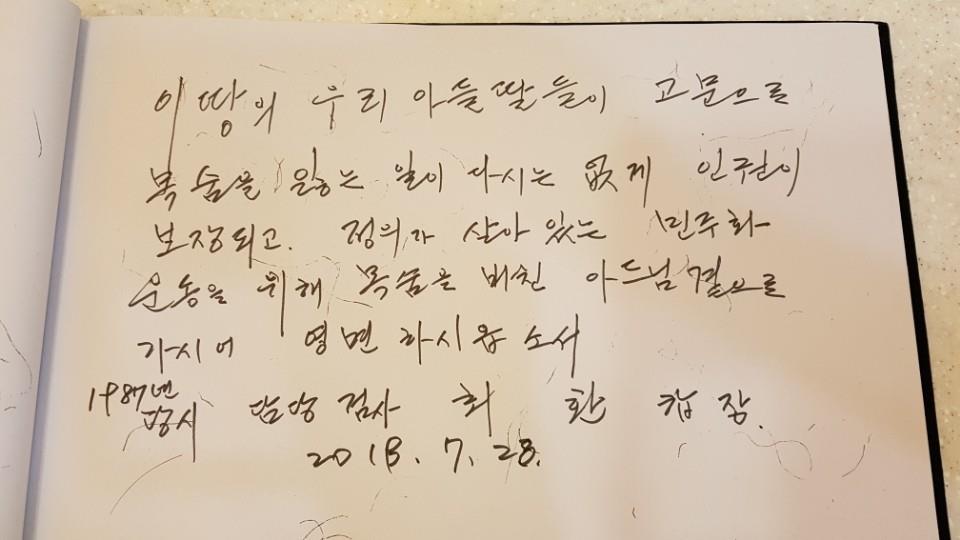 이 땅의 우리 아들딸들이 고문으로
목숨을 잃는 일이 다시는 없게 인권이
보장되고. 정의가 살아 있는 민주화
운동을 위해 목숨을 바친 아드님곁으로
가시어 영면 하시옵소서
1987년
당시 담당 검사 최 환 합장.
2018. 7. 28.